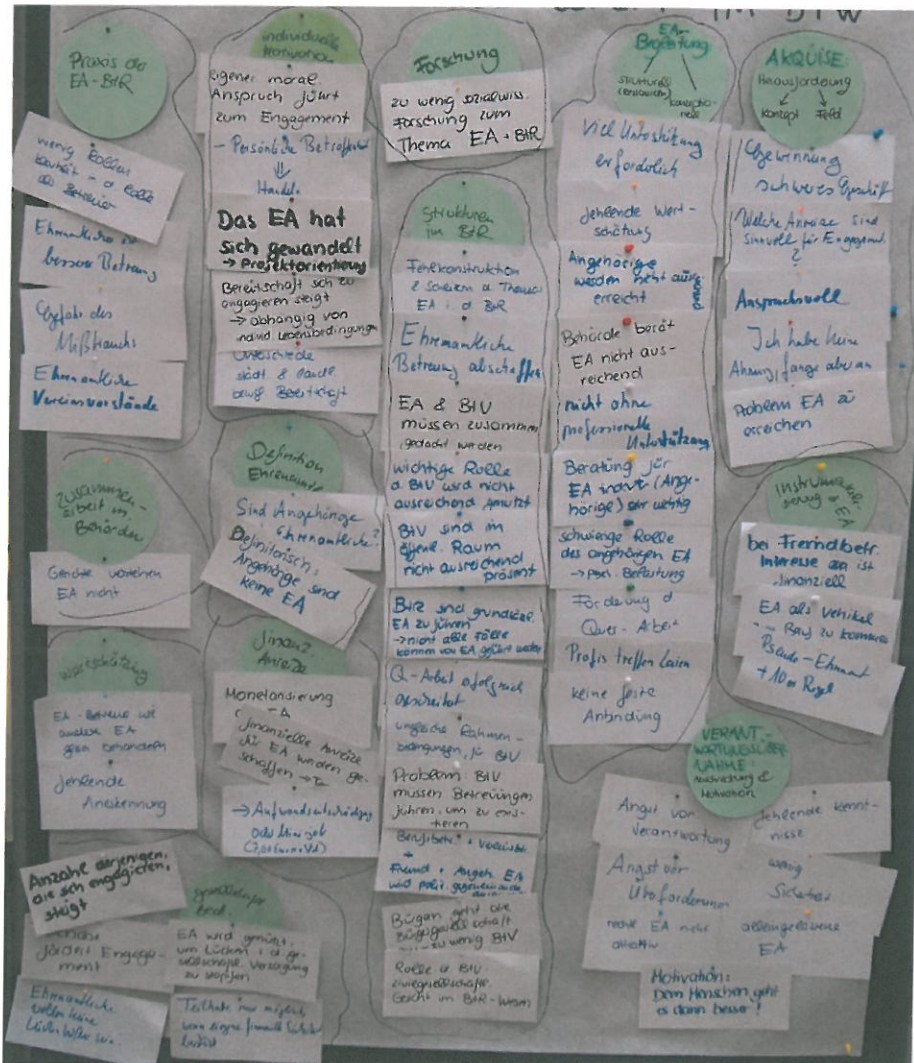 IM BTW
Praxis der
EA-BtR
wenig Rollen
klarheit - d Rolle
als Betreuer
Ehrenamtliche ist
bessere Betreuung
Gefahr des
Mißbrauchs
Ehrenamtliche
Vereinsvorstände
Zusammen-
arbeit m
Behörden
Gerichte verstehen
EA nicht
Wertschätzung
EA-Betreuer wie
andere EA
behandeln
fehlende
Anerkennung
Anzahl derjenigen,
die sich engagieren,
steigt
fördert Engage-
ment
Ehrenamtliche
wollen keine
individuelle
Motivation
eigener moral.
Anspruch führt
zum Engagement
- Persönliche Betroffenheit
⇓
Handeln
Das EA hat
sich gewandelt
→ Projektorientierung
Bereitschaft sich zu
engagieren steigt
→ abhängig von
individ Lebensbedingungen
Unterschiede
Stadt & Land
Bereitschaft
Definition
Ehrenamt
Sind Angehörige
Ehrenamtliche?
Definitorisch:
Angehörige sind
keine EA
finanz.
Anreize
Monetarisierung
finanzielle Anreize
für EA werden ge-
schaffen →
→ Aufwandsentschädigung
oder Minijob
gesellschaftl.
Bed.
EA wird genutzt,
um Lücken i. d. ge-
sellschaftl. Versorgung
zu stopfen
Teilhabe nur möglich,
wenn
Forschung
zu wenig sozialwiss.
Forschung zum
Thema EA + BtR
Strukturen
im BtR
Fehlkonstruktion
& Scheitern d. Thema
EA i. d BtR
Ehrenamtliche
Betreuung abschaffen
EA & BtV
müssen zusammen
gedacht werden
wichtige Rolle
d. BtV wird nicht
ausreichend genutzt
BtV sind im
öffentl. Raum
nicht ausreichend
präsent
BtR sind grundsätzl.
EA zu führen
→ nicht alle Fälle
können von EA geführt werden
Q-Arbeit erfolgreich
gescheitert
ungleiche Rahmen-
bedingungen für BtV
Problem: BtV
müssen Betreuungen
führen, um zu exis-
tieren
Fremd + Angeh EA
wird polit. gegeneinander
Bürgern geht die
Bürgergesellschaft
zu wenig BtV
Rolle d BtV:
zivilgesellschaftl.
Gesicht im BtR-Wesen
EA-
Begleitung
strukturell
konzeptio-
nell
Viel Unterstützung
erforderlich
fehlende Wert-
schätzung
Angehörige
werden nicht
erreicht
Behörde berät
EA nicht aus-
reichend
nicht ohne
professionelle
Unterstützung
Beratung für
EA (Ange-
hörige) sehr wichtig
schwierige Rolle
des angehörigen EA
→ psych. Belastung
Förderung d
Quer-Arbeit
Profis treffen Laien
keine feste
Anbindung
AKQUISE:
Herausforderung
Konzept Feld
schweres Geschäft
Welche Anreize sind
sinnvoll für Engagement
?
Anspruchsvoll
Ich habe keine
Ahnung, fange aber an
Problem EA zu
erreichen
Instrumentali-
sierung d EA
bei Fremdbetr.
Interesse an ist
finanziell
EA als Vehikel
Beruf zu kommen
Pseudo-Ehrenamt
+ 10er Regel
VERANT-
WORTUNGSÜBER-
NAHME:
Motivation
Angst vor
Verantwortung
fehlende Kennt-
nisse
Angst vor
Überforderung
wenig
Sicherheit
alleingelassene
EA
Motivation:
Dem Menschen geht
es dann besser!